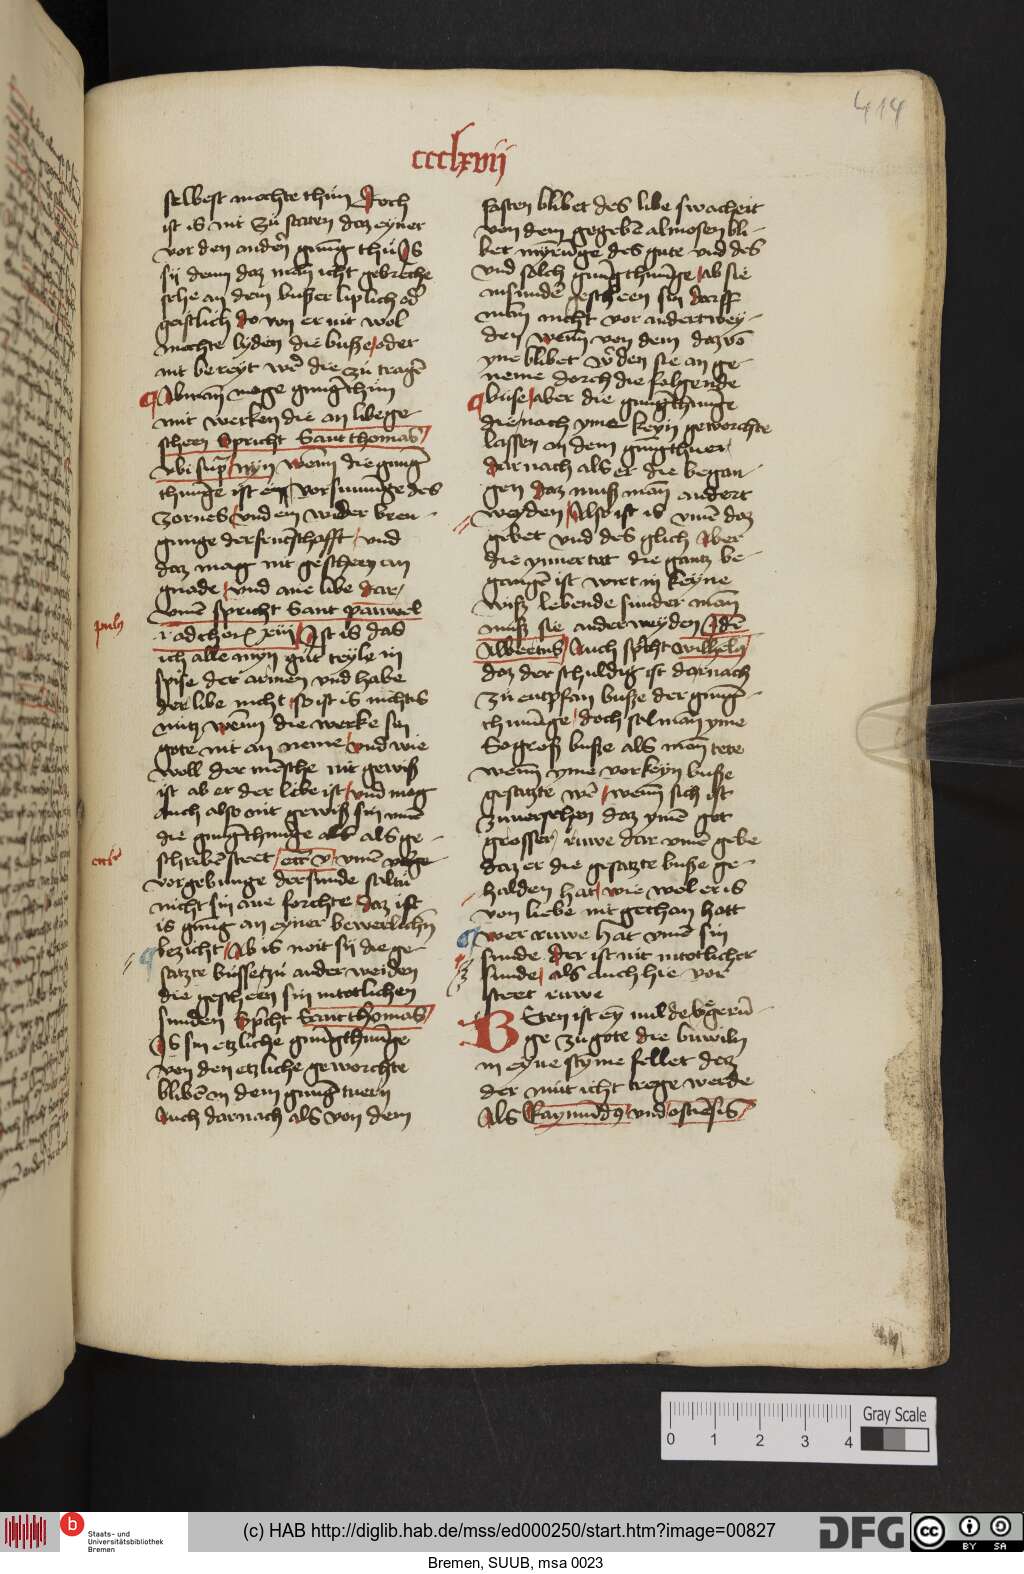 414
ccclxvij
selbest mochte thun Doch
ist is nit zu staten daz eyner
vor den andeñ gnug thu Is
sij denn daz man icht gebreche
sehe an dem busser liplich od
geistlich do von er nit wol
mochte lyden die busze oder
nit bereyt we die zu tragē
Ab man moge gnugthun
mit werken die an libe ge
scheen Spricht Sant thomas
vbi sup nyn wenn die gnug
thunge ist eyn vorsununge des
zornes vnd ein wider bren
gunge der fruntschafft vnd
daz mag nit gescheen an
gnade vnd ane libe dar
vmē spricht Sant pauwel
pauls
i ad chor xiij Ist is das
ich alle myn gut teyle in
spise der armen vnd habe
der libe nicht so ist is nichts
nutz wenn die werke sin
gote nit an neme vnd wie
woll der mēsche nit gewiß
ist ab er der libe ist vnd mag
auch also nit gewiß sin vmē
die gnugthunge als ge
schribē steet ecc v vmē
eccē
vorgebunge der sunde saltu
nicht sin ane forchte daz ist
is gnug an eyner bewerlichn
bezicht Ab is noit sij die ge
satzte busse zu ander weiden
die gescheen sin in totlichen
sunden Spcht Sant thomas
Is sin etzliche gnugthunge
von den etzliche geworchte
blibē in dem gnug tuern
Auch darnach als von dem
fasten blibet des libe swacheit
von dem gegebē almosen bli
ket mynruge des gute vnd des
vnd solch gnugthunge ab sie
in sunde gescheen sin darff
man nicht vor andertwey
den wenn von dem daz vō
yne blibet wden sie an ge
neme dorch die folgende
buse aber die gnugthunge
die nach yme keyn geworchte
lassen an dem gnugthuer
dar nach als er die began
gen daz muß man andert
weyden Also ist is vmē daz
gebet vnd des glich Aber
die ynnertet die gantz be
gangē ist wirt in keyne
wisz lebende sunder man
musz sie anderweyden Idē
Albertus Auch spcht wilhelm
daz der schuldig ist darnach
zu entpfan busze der gnug
thunge doch sal man yme
So groß busze als man tete
wenn yme vor keyn busze
gesatzte wē wenn sich ist
zuuersehen daz ymē got
grosser ruwe dar vmē gebe
daz er die gesatzte busze ge
halden hat wie wol er is
von liebe nit gethan hatt
wer ruwe hat vmē sin
sunde der ist nit in totlicher
sunde als auch hie vor
steet ruwe
Beten ist ey milde begerū
ge zu gote die bewiln
in eyne styme fellet daz
der mut icht trege werde
Als Raymūdꝰ vnd ostiēsis
0 1 2 3 4
Gray Scale
Staats- und
Universitätsbibliothek
Bremen
(c) HAB http://diglib.hab.de/mss/ed000250/start.htm?image=00827
DFG
cc
BY SA
Bremen, SUUB, msa 0023